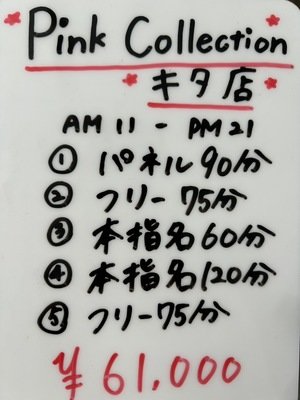 Pink Collection
キタ店
AM 11 - PM 21
① パネル 90分
② フリー 75分
③ 本指名 60分
④ 本指名 120分
⑤ フリー 75分
¥ 61,000